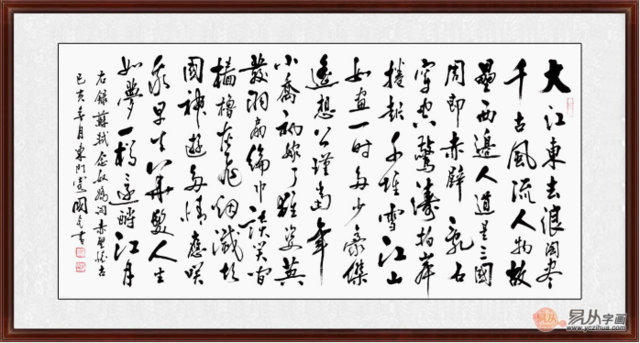 大江東去浪淘盡
千古風流人物故
壘西邊人道是三國
周郎赤壁亂石
穿空驚濤拍岸
捲起千堆雪江山
如畫一時多少豪傑
遙想公瑾當年
小喬初嫁了雄姿英
發羽扇綸巾談笑間
檣櫓灰飛煙滅故
國神遊多情應笑
我早生華髮人生
如夢一樽還酹江月
右錄蘇軾念奴嬌詞赤壁懷古
己亥 月東門 國 書
易从字画
www.yczihua.com